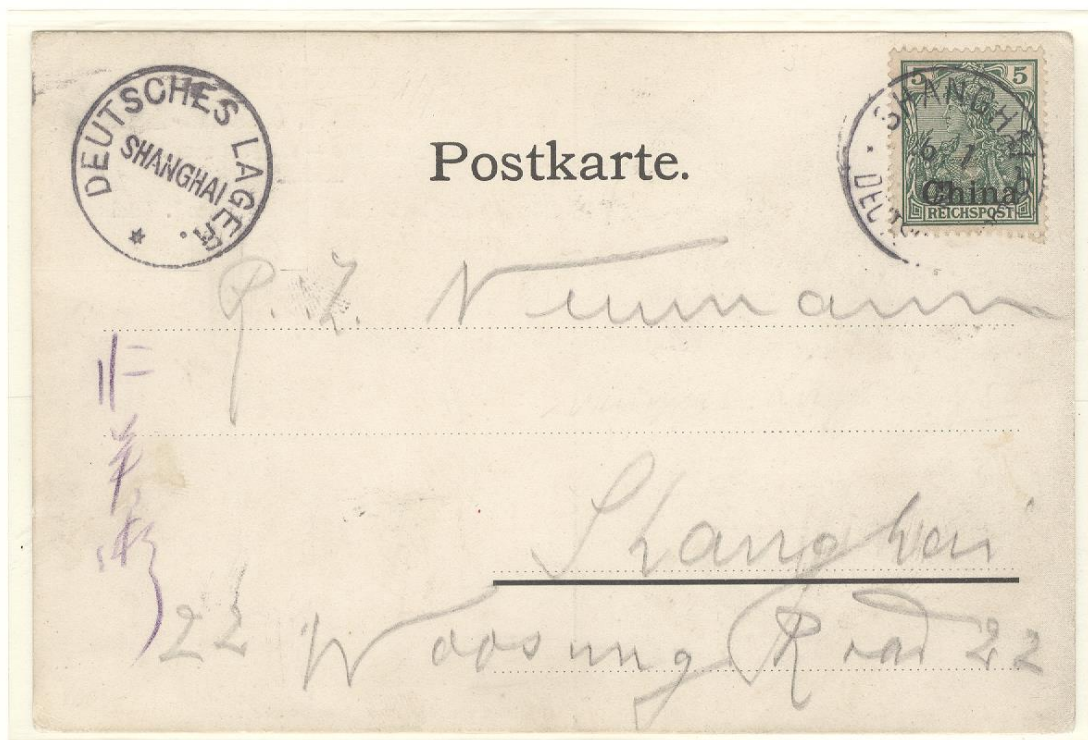 DEUTSCHES LAGER
SHANGHAI
Postkarte.
SHANGHAI
5 5
China
REICHSPOST
P. Z. Neumann
Shanghai
22 Woosung Road 22